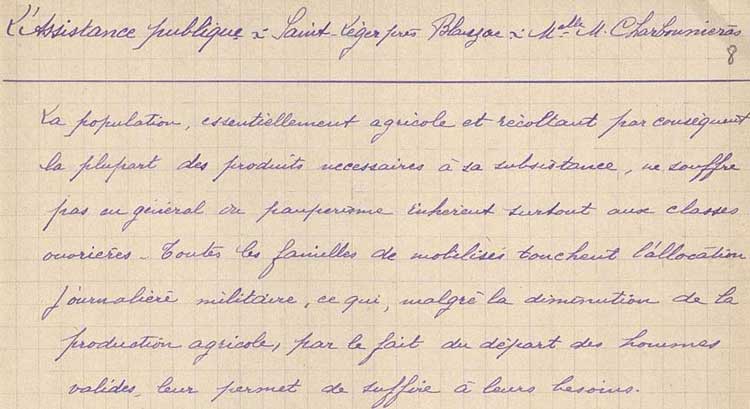 L'Assistance publique ~ Saint-Léger près Blanzac ~ Melle M. Charbonnieras
8
La population, essentiellement agricole et récoltant par conséquent
la plupart des produits necessaires à sa subsistance, ne souffre
pas en général du pauperisme inhérent surtout aux classes
ouvrières - Toutes les familles de mobilisés touchent l'allocation
journalière militaire, ce qui, malgré la diminution de la
production agricole, par le fait du départ des hommes
valides, leur permet de suffire à leurs besoins.